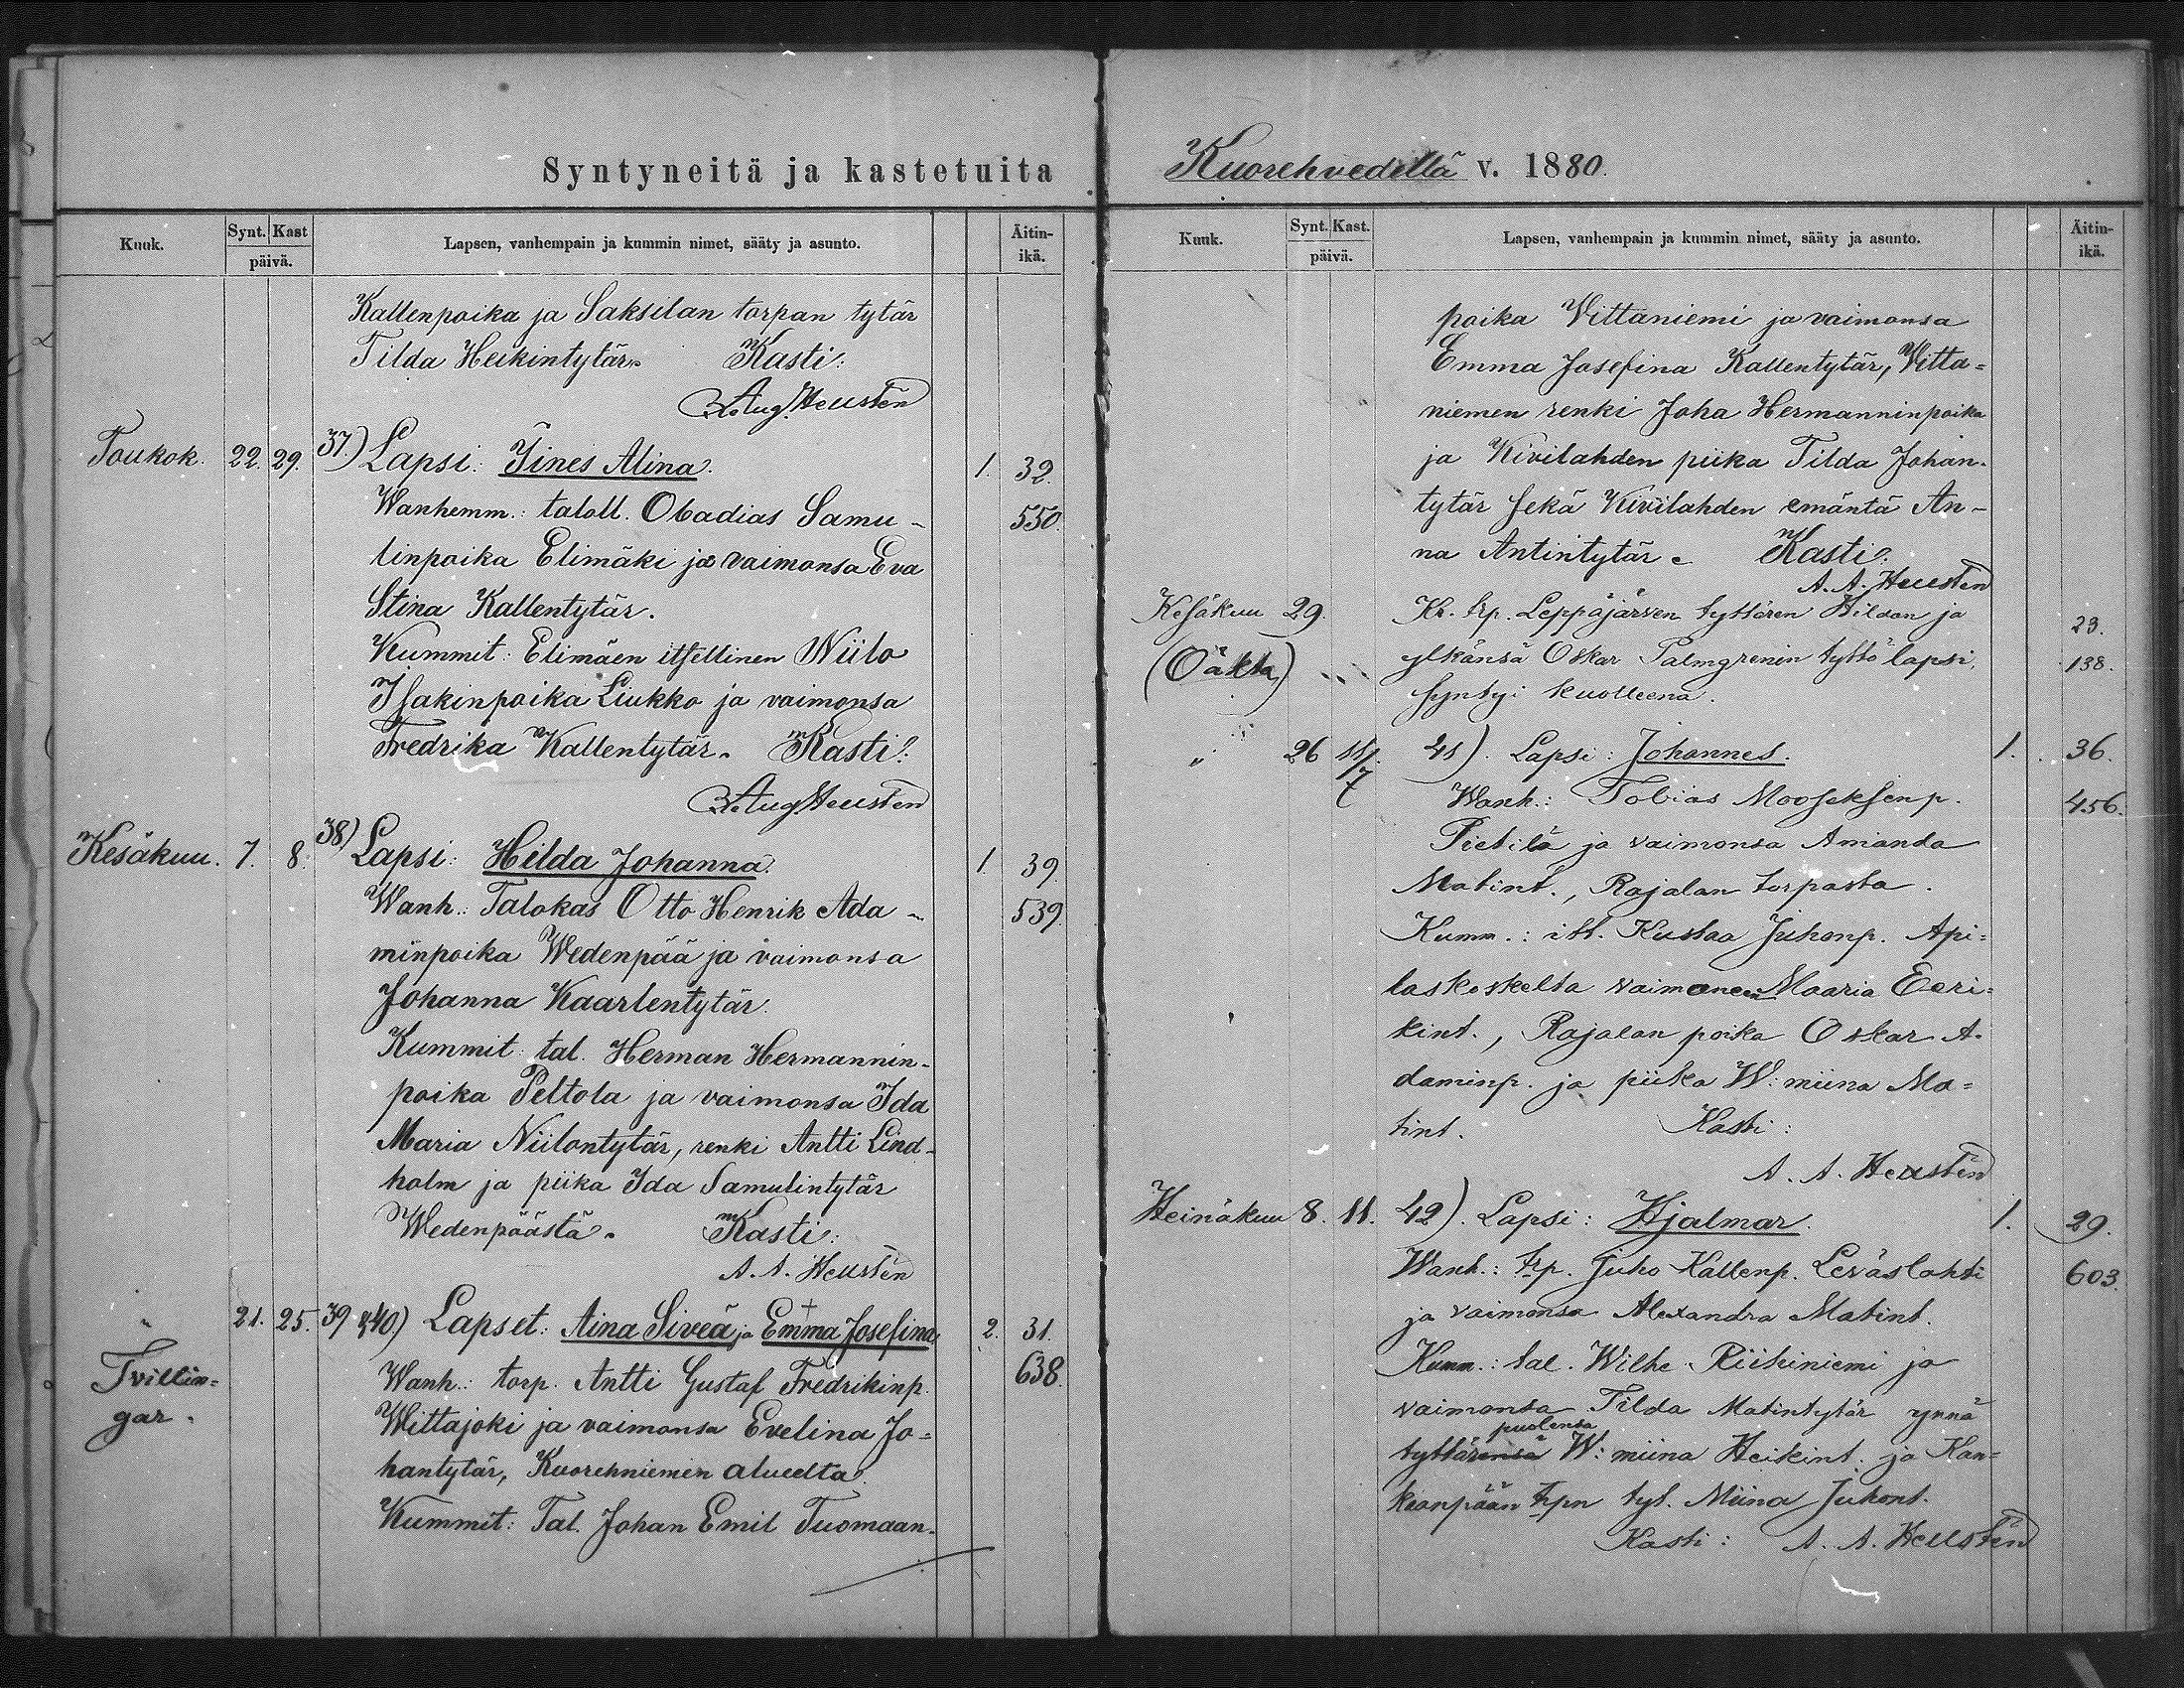 Syntyneitä ja kastetuita
Kuuk. Synt. Kast päivä. Lapsen, vanhempain ja kummin nimet, sääty ja asunto. Äitin-ikä.
Kallenpoika ja Saksilan torpan tytär
Tilda Heikintytär. Kasti:
A. Aug. Hellstén
Toukok. 22. 29. 37.) Lapsi: Iines Alina. 1. 32.
Wanhemm.: taloll. Obadias Samu- 550.
linpoika Elimäki ja vaimonsa Eva
Stina Kallentytär.
Kummit: Elimäen itsellinen Niilo
Isakinpoika Liukko ja vaimonsa
Fredrika Kallentytär. Kasti:
A. Aug. Hellstén
Kesäkuu. 7. 8. 38) Lapsi: Hilda Johanna. 1. 39.
Wanh.: Talokas Otto Henrik Ada- 539.
minpoika Wedenpää ja vaimonsa
Johanna Kaarlentytär.
Kummit: tal. Herman Hermannin-
poika Peltola ja vaimonsa Ida
Maria Niilontytär, renki Antti Lind-
holm ja piika Ida Samulintytär
Wedenpäästä. Kasti:
A. A. Hellstén
" 21. 25. 39 & 40) Lapset: Aina Siveä, ja Emma Josefina 2. 31.
Tvillin= Wanh.: torp. Antti Gustaf Fredrikinp. 638.
gar. Wittajoki ja vaimonsa Evelina Jo=
hantytär, Kuorehniemen alueelta.
Kummit: Tal. Johan Emil Tuomaan-
Kuorehvedellä v. 1880.
Kuuk. Synt. Kast. päivä. Lapsen, vanhempain ja kummin nimet, sääty ja asunto. Äitin-ikä.
poika Wittaniemi ja vaimonsa
Emma Josefina Kallentytär, Witta=
niemen renki Joha Hermanninpoika
ja Kivilahden piika Tilda Johan-
tytär sekä Kivilahden emäntä An-
na Antintytär. Kasti:
A. A. Hellstén
Kesäkuu 29. Kr. trp. Leppäjärven tyttären Hildan ja 23.
(Oäkta) ylkänsä Oskar Palmgrenin tyttölapsi, 138.
syntyi kuolleena.
" 26 11/7 41). Lapsi: Johannes. 1. 36.
Wanh.: Tobias Mooseksenp. 456.
Pietilä ja vaimonsa Amanda
Matint., Rajalan torpasta.
Kumm.: itt. Kustaa Juhonp. Api=
laskoskelta vaimoneen Maaria Eeri=
kint., Rajalan poika Oskar A-
daminp. ja piika W:miina Ma=
tint. Kasti:
A. A. Hellstén
Heinäkuu 8. 11. 42). Lapsi: Hjalmar. 1. 29.
Wanh.: trp. Juho Kallenp. Leväslahti 603.
ja vaimonsa Alexandra Matint.
Kumm.: tal. Wilhe Riihiniemi ja
vaimonsa Tilda Matintytär ynnä
puolensa
tyttärensä W:miina Heikint. ja Kan=
kaanpään trpn tyt. Miina Juhont.
Kasti: A. A. Hellstén